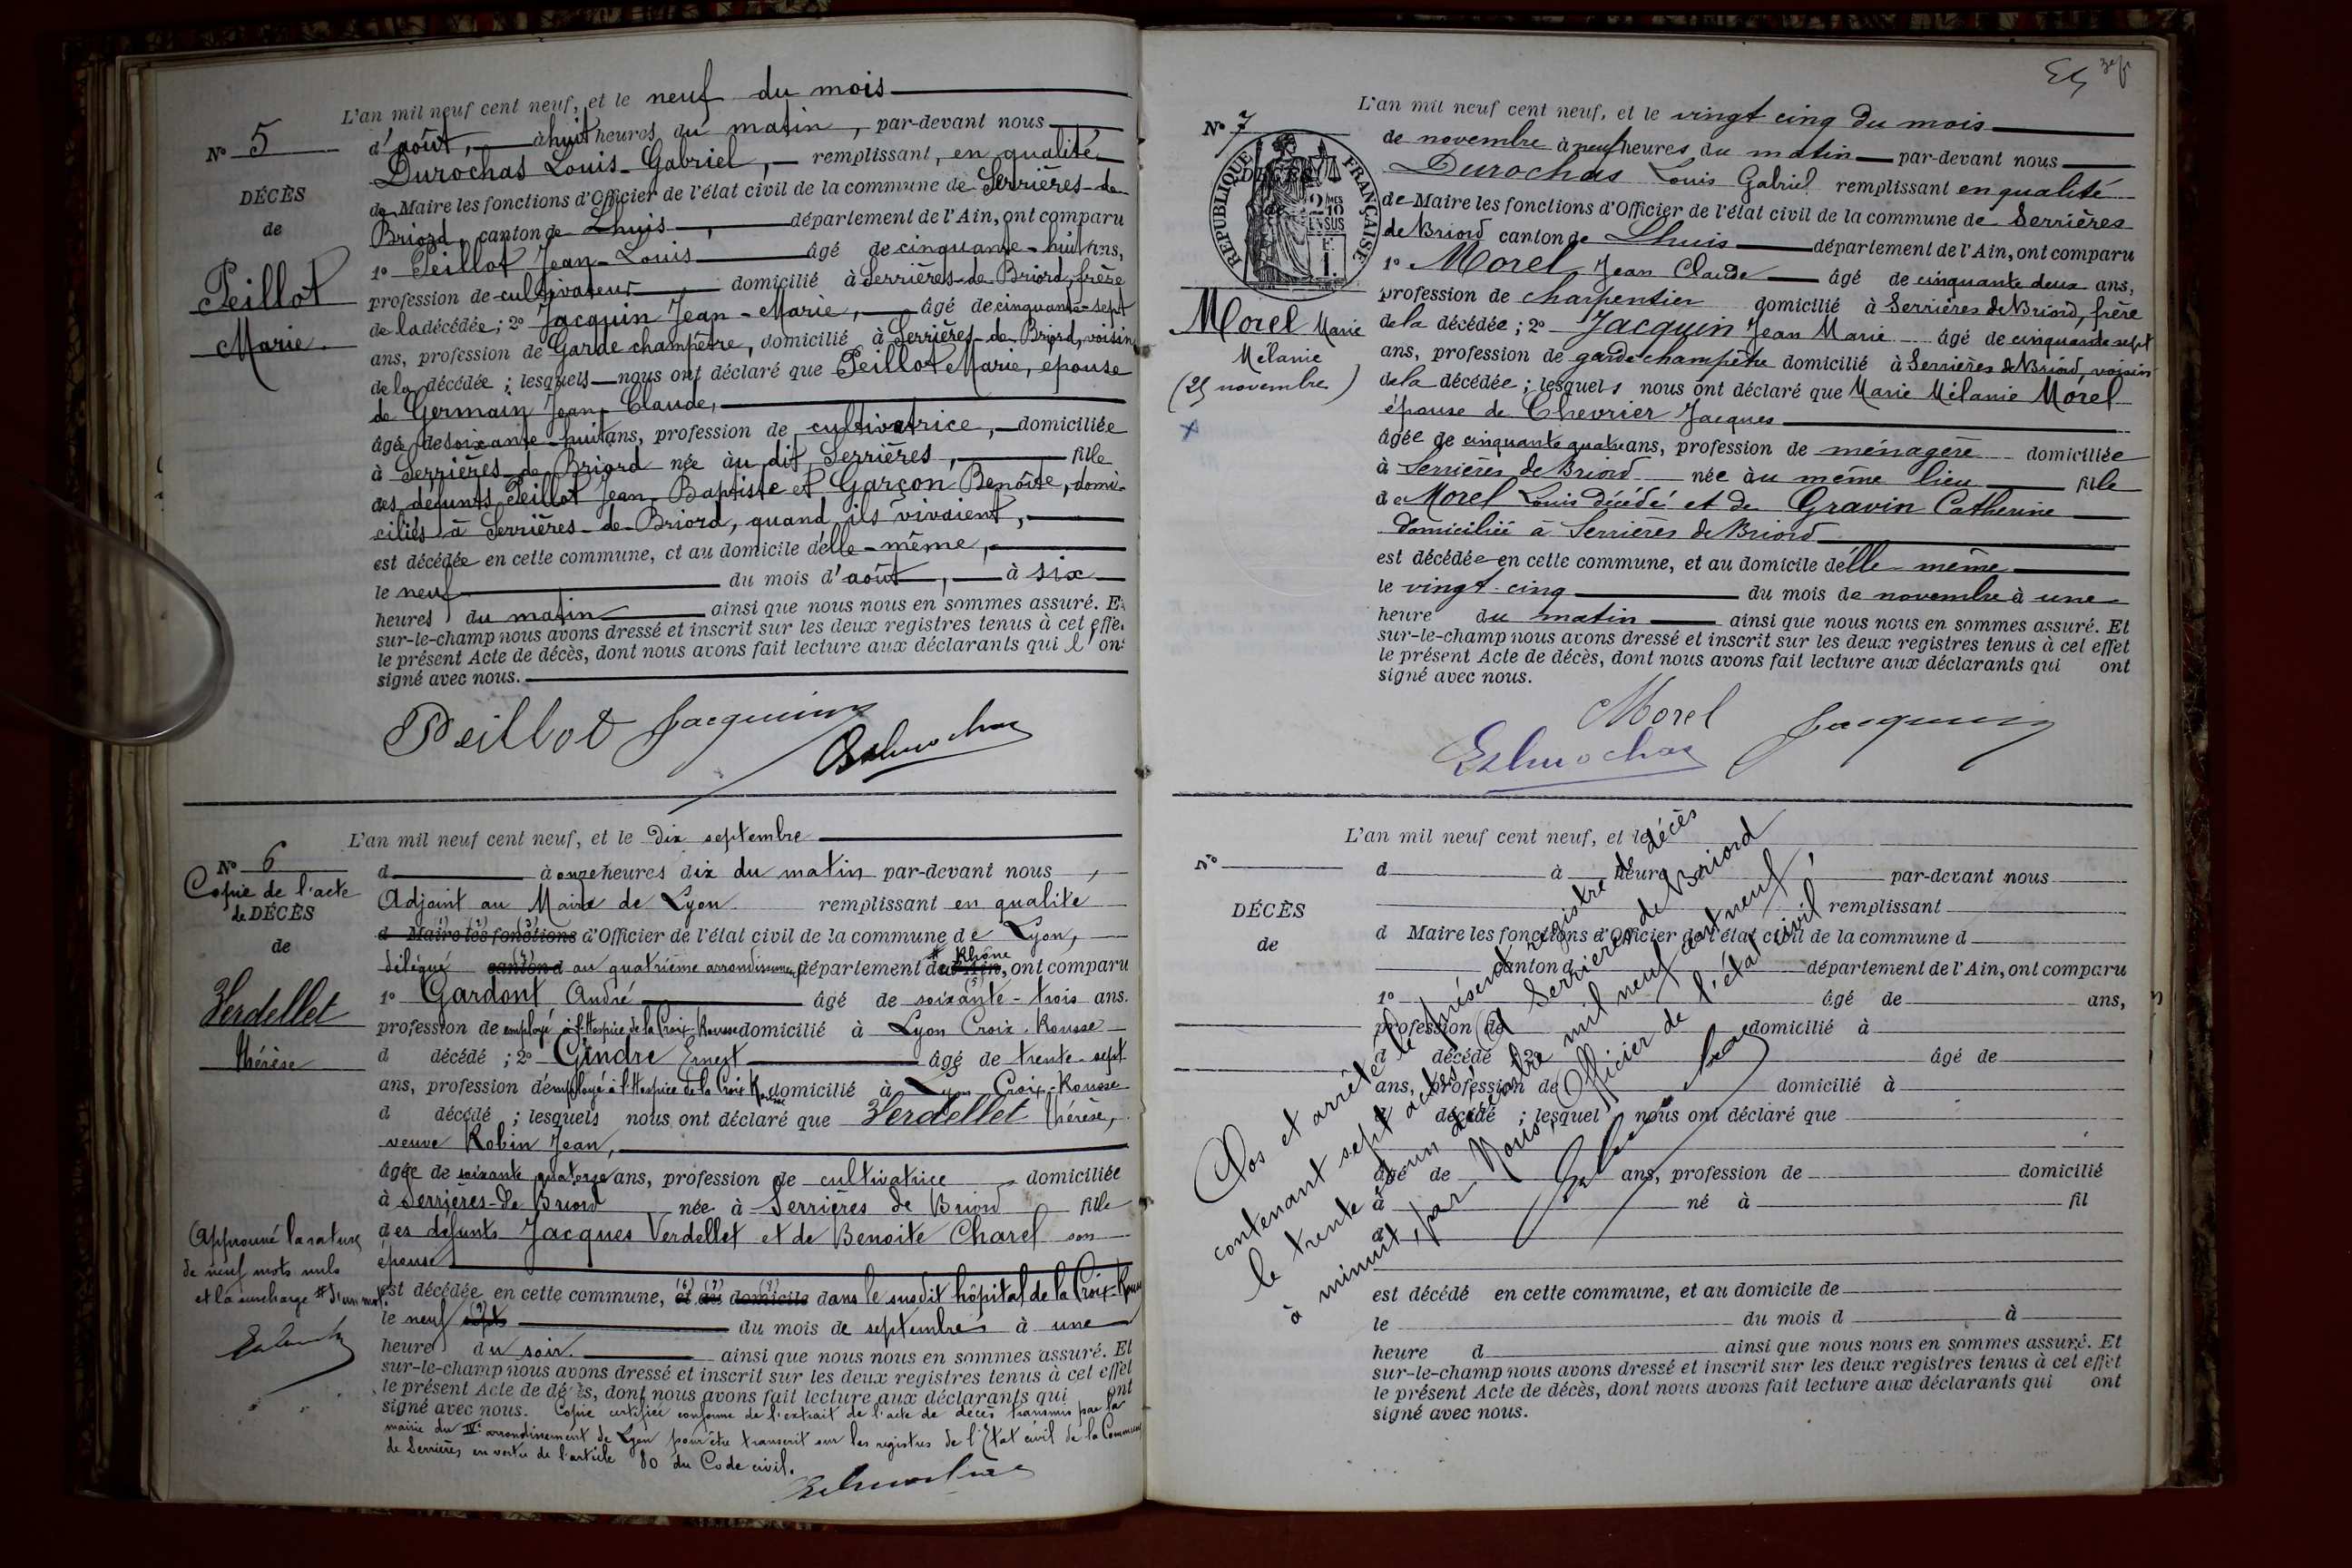 L'an mil neuf cent neuf, et le neuf du mois
N° 5
d'août, à huit heures du matin, par-devant nous
Durochas Louis-Gabriel, remplissant, en qualité
DÉCÈS
de Maire les fonctions d'Officier de l'état civil de la commune de Serrières-de-
de
Briord, canton de Lhuis, département de l'Ain, ont comparu
1° Peillot Jean-Louis âgé de cinquante-huit ans,
Peillot
profession de cultivateur, domicilié à Serrières-de-Briord, frère
de la décédée; 2° Jacquin Jean-Marie, âgé de cinquante-sept
Marie.
ans, profession de Garde champêtre, domicilié à Serrières-de-Briord, voisin
de la décédée; lesquels nous ont déclaré que Peillot Marie, épouse
de Germain Jean-Claude,
âgée de soixante-huit ans, profession de cultivatrice, domiciliée
à Serrières-de-Briord née au dit Serrières, fille
des défunts Peillot Jean-Baptiste et Garçon Benoîte, domi-
ciliés à Serrières-de-Briord, quand ils vivaient,
est décédée en cette commune, et au domicile d'elle-même,
le neuf du mois d'août, à six
heures du matin ainsi que nous nous en sommes assuré. Et
sur-le-champ nous avons dressé et inscrit sur les deux registres tenus à cet effet
le présent Acte de décès, dont nous avons fait lecture aux déclarants qui l'ont
signé avec nous.
Peillot Jacquin
L'an mil neuf cent neuf, et le Dix septembre
N° 6
d à onze heures dix du matin par-devant nous,
Copie de l'acte
Adjoint au Maire de Lyon remplissant en qualité
de DÉCÈS
d Maire les fonctions d'Officier de l'état civil de la commune de Lyon,
de
délégué canton d au quatrième arrondissement département du Rhône, ont comparu
1° Gardont André âgé de soixante-trois ans.
Verdellet
profession de employé à l'Hospice de la Croix-Rousse domicilié à Lyon Croix-Rousse
d décédé; 2° Gindre Ernest âgé de trente-sept
Thérèse
ans, profession d'employé à l'Hospice de la Croix Rousse domicilié à Lyon Croix-Rousse
d décédé; lesquels nous ont déclaré que Verdellet Thérèse,
veuve Robin Jean,
âgée de soixante quatorze ans, profession de cultivatrice domiciliée
à Serrières-de Briord née à Serrières de Briord fille
des défunts Jacques Verdellet et de Benoite Charel son
épouse
Approuvé la rature
de neuf mots nuls
et la surcharge # d'un mot.
est décédée en cette commune, et au domicile dans le susdit hôpital de la Croix-Rousse
le neuf du mois de septembre à une
heure du soir. ainsi que nous nous en sommes assuré. Et
sur-le-champ nous avons dressé et inscrit sur les deux registres tenus à cet effet
le présent Acte de décès, dont nous avons fait lecture aux déclarants qui ont
signé avec nous. Copie certifiée conforme de l'extrait de l'acte de décès transmis par la
mairie du IVe arrondissement de Lyon pour être transcrit sur les registres de l'Etat civil de la Commune
de Serrières en vertu de l'article 80 du Code civil.
L'an mil neuf cent neuf, et le vingt cinq du mois
N° 7
de novembre à neuf heures du matin par-devant nous
Durochas Louis Gabriel remplissant en qualité
RÉPUBLIQUE FRANÇAISE
DÉCÈS
de
2/10
EN SUS
de Maire les fonctions d'Officier de l'état civil de la commune de Serrières
de Briord canton de Lhuis département de l'Ain, ont comparu
1° Morel Jean Claude âgé de cinquante deux ans,
profession de charpentier domicilié à Serrières de Briord, frère
Morel Marie
Mélanie
(25 novembre)
de la décédée; 2° Jacquin Jean Marie âgé de cinquante sept
ans, profession de garde champêtre domicilié à Serrières de Briord, voisin
de la décédée; lesquels nous ont déclaré que Marie Mélanie Morel
épouse de Chevrier Jacques
âgée de cinquante quatre ans, profession de ménagère domiciliée
à Serrières de Briord née au même lieu fille
de Morel Louis décédé et de Gravin Catherine
domiciliée à Serrières de Briord
est décédée en cette commune, et au domicile d'elle-même
le vingt-cinq du mois de novembre à une
heure du matin ainsi que nous nous en sommes assuré. Et
sur-le-champ nous avons dressé et inscrit sur les deux registres tenus à cet effet
le présent Acte de décès, dont nous avons fait lecture aux déclarants qui ont
signé avec nous.
Morel Jacquin
L'an mil neuf cent neuf, et le
N°
d à heure par-devant nous
remplissant
DÉCÈS
d Maire les fonctions d'Officier de l'état civil de la commune d
de
canton d département de l'Ain, ont comparu
1° âgé de ans,
profession de domicilié à
d décédé; 2° âgé de
ans, profession de domicilié à
d décédé; lesquel nous ont déclaré que
âgé de ans, profession de domicilié
à né à fil
d
est décédé en cette commune, et au domicile de
le du mois d à
heure d ainsi que nous nous en sommes assuré. Et
sur-le-champ nous avons dressé et inscrit sur les deux registres tenus à cet effet
le présent Acte de décès, dont nous avons fait lecture aux déclarants qui ont
signé avec nous.
Clos et arrêté le présent registre de décès
contenant sept actes, à Serrières de Briord
le trente et un décembre mil neuf cent neuf,
à minuit, par Nous, Officier de l'état civil